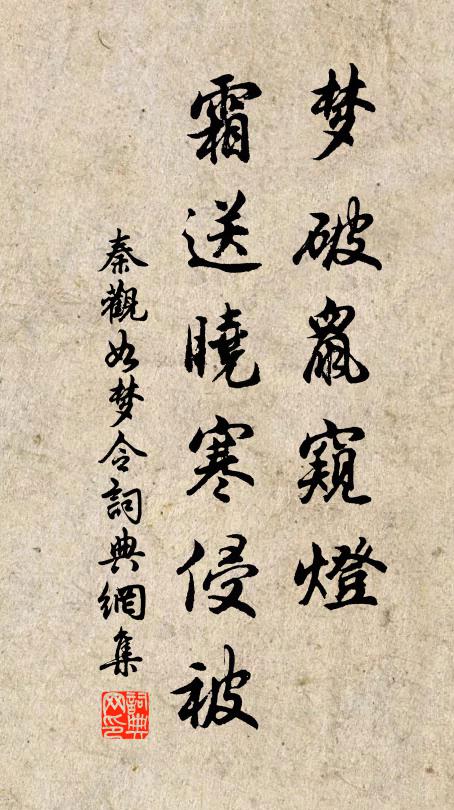 梦破鼠窺燈
霜送曉寒侵被
秦觀如梦令詞典網集
詞典网印